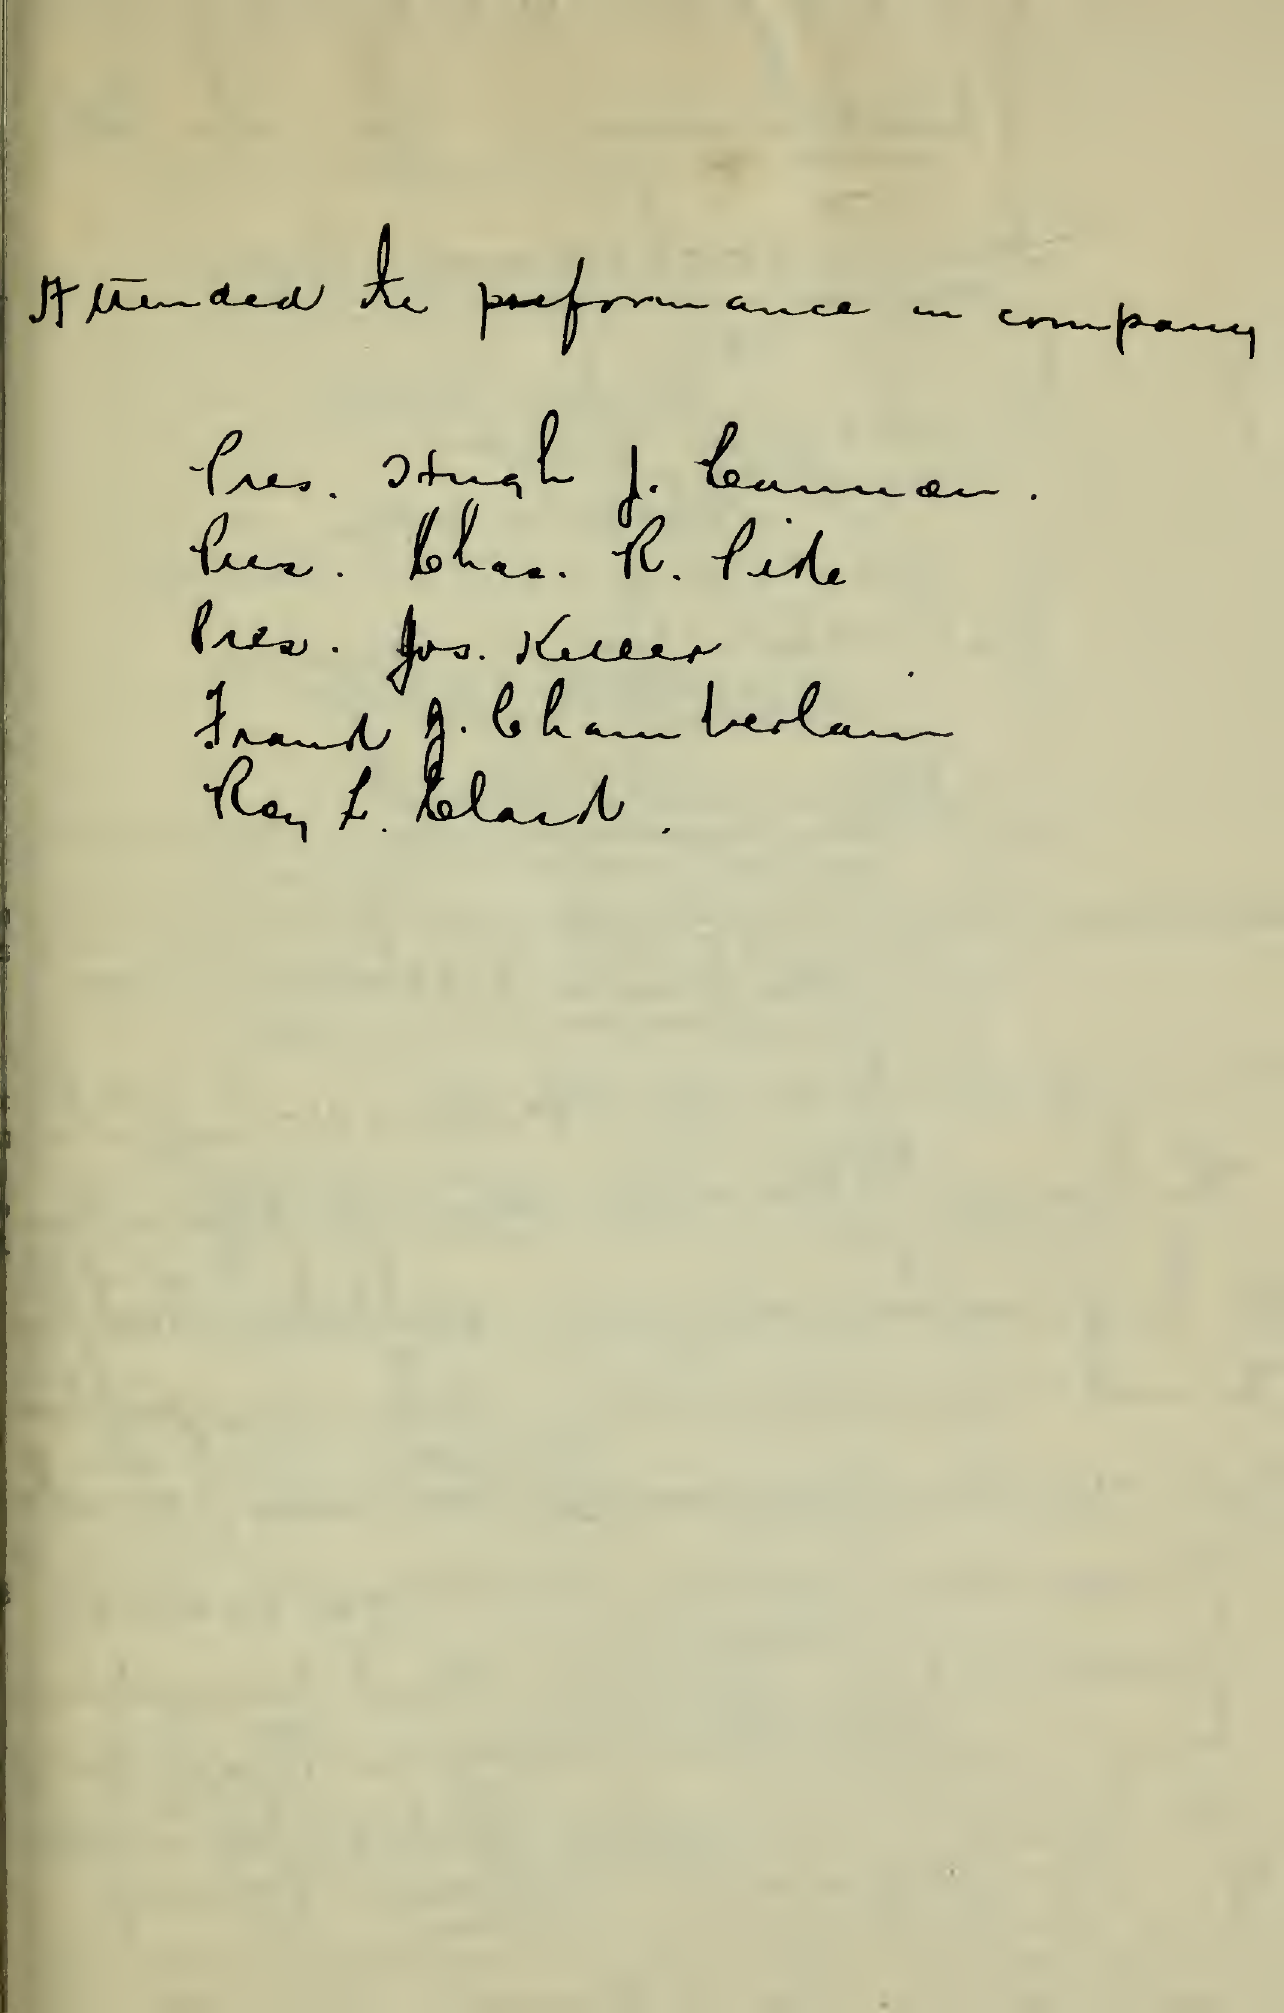 Attended the performance in company
Pres. Hugh J. Cannon.
Pres. Chas. R. Pike
Pres. Jos. Keeler
Frank J. Chamberlain
Roy L. Clark.